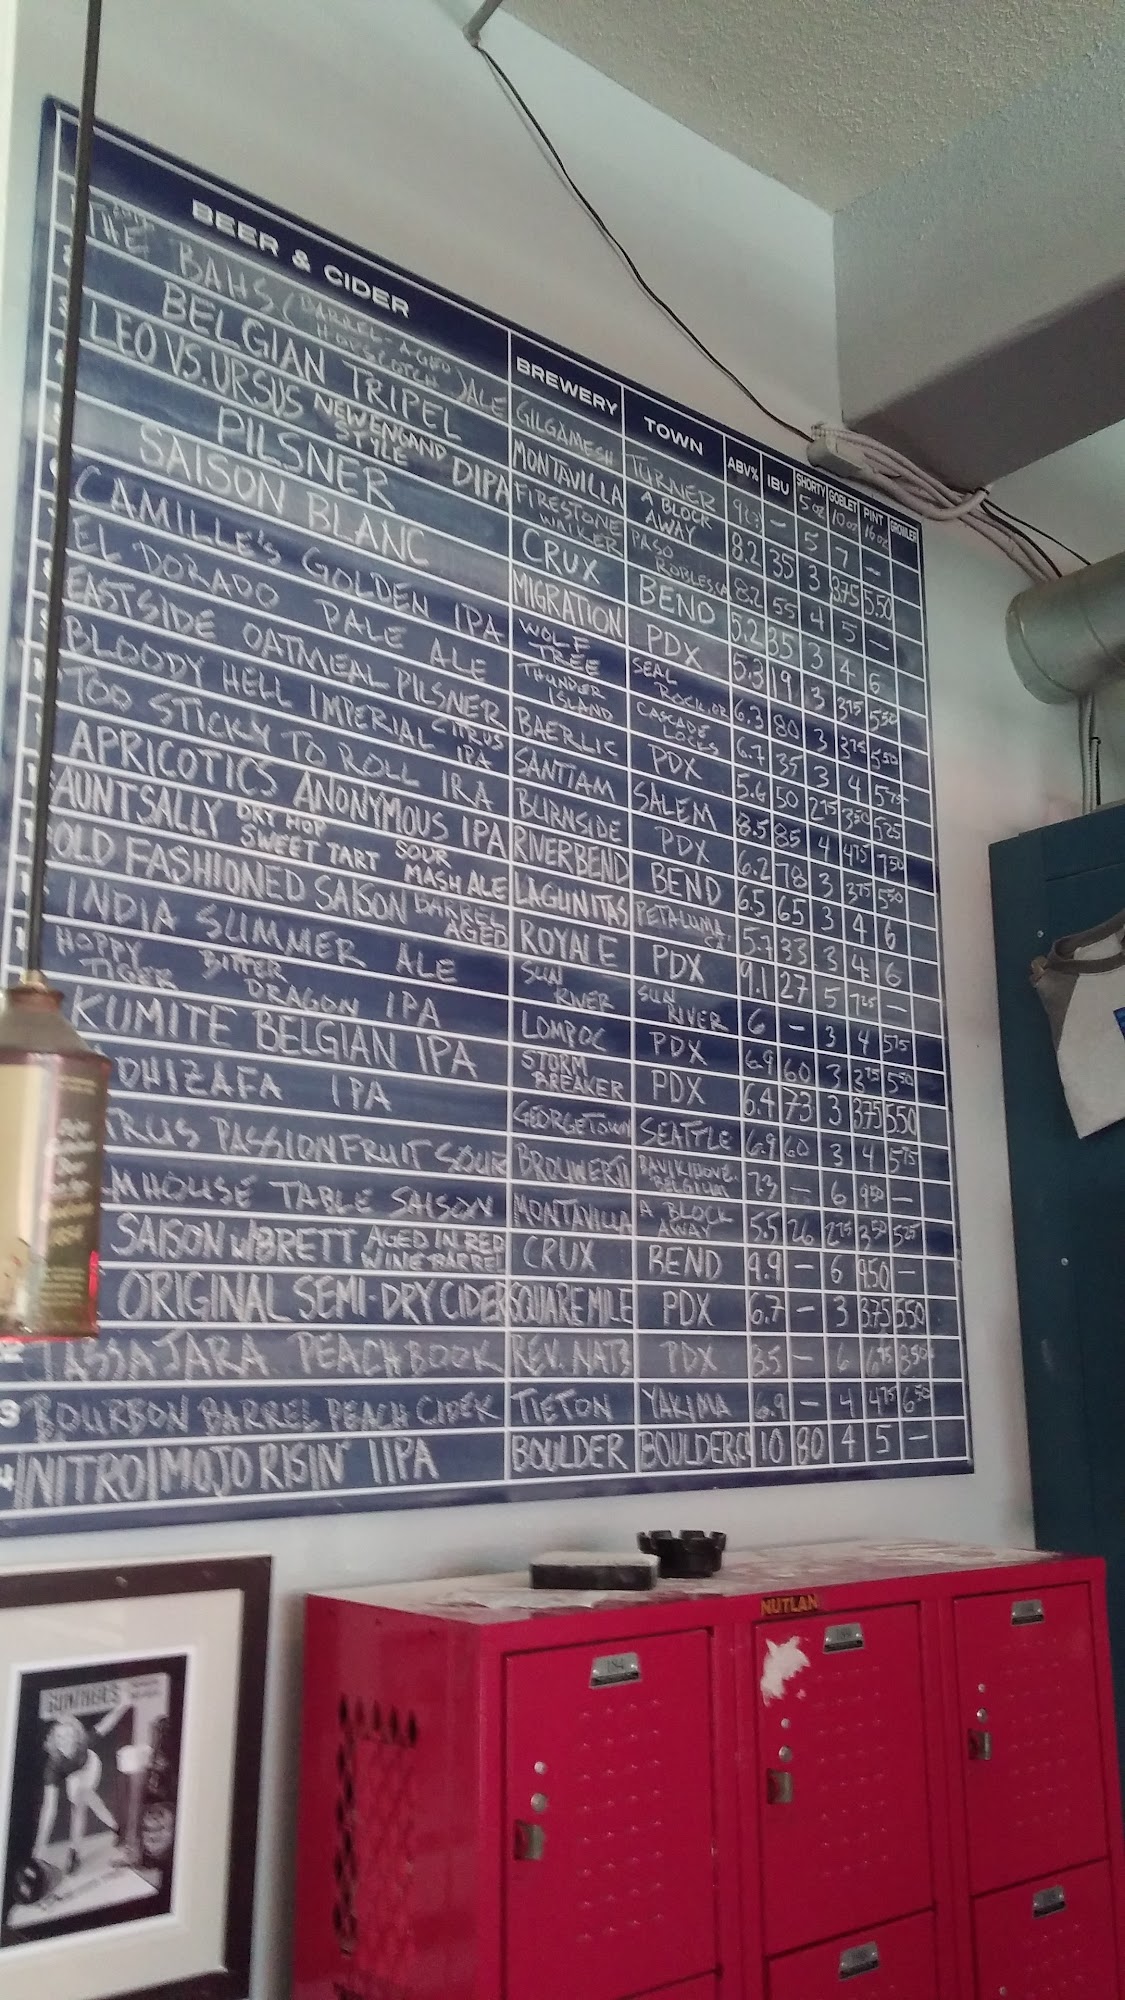 BEER & CIDER BREWERY TOWN ABV% IBU SHORTY 5 oz GOBLET 10 oz PINT 16 oz GROWLER
THE BAHS (BARREL-AGED HOPSCOTCH) ALE GILGAMESH TURNER — 5 7 —
BELGIAN TRIPEL MONTAVILLA A BLOCK AWAY 8.2 35 3 375 5.50
LEO VS. URSUS NEW ENGLAND STYLE DIPA FIRESTONE WALKER PASO ROBLES CA 8.2 55 4 5 —
PILSNER CRUX BEND 5.2 35 3 4 6
SAISON BLANC MIGRATION PDX 5.3 19 3 375 550
CAMILLE'S GOLDEN IPA WOLF TREE SEAL ROCK, OR 6.3 80 3 375 550
EL DORADO PALE ALE THUNDER ISLAND CASCADE LOCKS 6.7 35 3 4 575
EASTSIDE OATMEAL PILSNER BAERLIC PDX 5.6 50 275 350 525
BLOODY HELL IMPERIAL CITRUS IPA SANTIAM SALEM 8.5 85 4 475 750
TOO STICKY TO ROLL IRA BURNSIDE PDX 6.2 78 3 375 550
APRICOTICS ANONYMOUS IPA RIVERBEND BEND 6.5 65 3 4 6
AUNT SALLY DRY HOP SWEET TART SOUR MASH ALE LAGUNITAS PETALUMA, CA. 5.7 33 3 4 6
OLD FASHIONED SAISON BARREL AGED ROYALE PDX 9.1 27 5 725 —
INDIA SUMMER ALE SUN RIVER SUN RIVER 6 — 3 4 575
HOPPY TIGER BITTER DRAGON IPA LOMPOC PDX 6.9 60 3 375 550
KUMITE BELGIAN IPA STORM BREAKER PDX 6.4 73 3 375 550
DHIZAFA IPA GEORGETOWN SEATTLE 6.9 60 3 4 575
TRUS PASSIONFRUIT SOUR BROUWERIJ BELGIUM 7.3 — 6 950 —
MHOUSE TABLE SAISON MONTAVILLA A BLOCK AWAY 5.5 26 275 350 525
SAISON W/BRETT AGED IN RED WINE BARREL CRUX BEND 9.9 — 6 950 —
ORIGINAL SEMI-DRY CIDER SQUARE MILE PDX 6.7 — 3 375 550
TASSAJARA PEACH BOOK REV. NATS PDX — 6 675 850
3 BOURBON BARREL PEACH CIDER TIETON YAKIMA 6.9 — 4 475 650
4 |NITRO| MOJO RISIN' IIPA BOULDER BOULDER, CO 10 80 4 5 —
NUTLAN
184